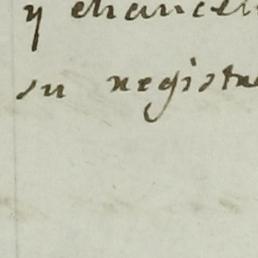 y chancell
su registr